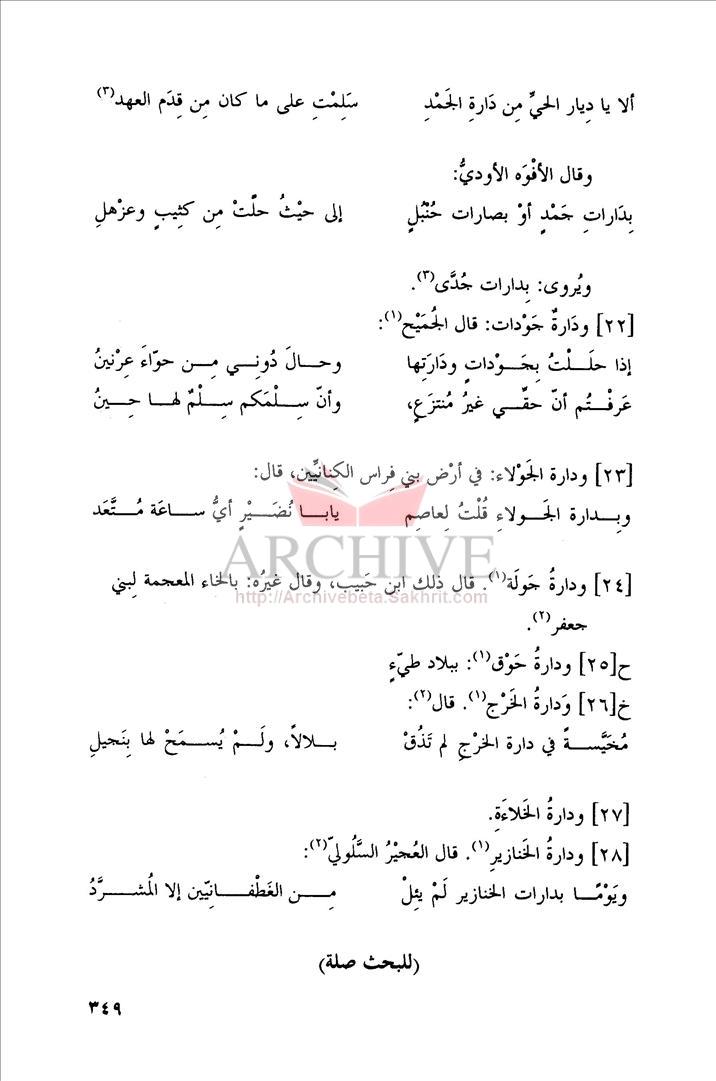 ألا يا دِيار الحيِّ مِن دَارةِ الجَمْدِ سَلِمْتِ على ما كان مِن قِدَم العهد(٣)
وقال الأفْوَه الأوديُّ:
بِدَاراتِ جَمْدٍ أوْ بصارات حُنْبُلٍ إلى حيْثُ حلّتْ مِن كثِيبٍ وعزْهلِ
ويُروى: بِدارات جُدَّى(٣).
[٢٢] ودَارةٌ جَوْدات: قال الجُمَيْح(١):
إذا حلَـــلْتُ بِجَـــوْداتٍ ودَارَتِها وحـــالَ دُونـــي مِـــن حوّاءَ عِرْنينُ
عَرفْـــتُم أنّ حقِّـــي غيرُ مُنتزَعٍ، وأنّ سِـــلْمَكم سِـــلْمٌ لهـــا حِـــينُ
[٢٣] ودارة الجَوْلاء: في أرْض بني فِراس الكِنانيِّين، قال:
وبِـــدارة الجَـــولاءِ قُلْتُ لِعاصِمِ يابـــا نُضَـــيْرٍ أيُّ ســـاعَة مُـــتَّعَد
ARCHIVE
http://Archivebeta.Sakhrit.com
[٢٤] ودارةُ جَولَة(١). قال ذلك ابن حَبيب، وقال غيرُه: بالخاء المعجمة لِبني
جعفر(٢).
ح[٢٥] ودارةُ حَوْق(١): ببلاد طيّءٍ
خ[٢٦] وَدارةُ الخَرْج(١). قال(٢):
مُخَيَّســـةً في دارة الخرْجِ لم تَذُقْ بـــلالاً، ولَـــمْ يُســـمَحْ لها بِنَجيلِ
[٢٧] ودارةُ الخَلاءَةِ.
[٢٨] ودارةُ الخَنازيرِ(١). قال العُجيْرُ السَّلُوليّ(٢):
ويَوْمًـــا بدارات الخنازير لَمْ يئِلْ مِـــن الغَطْفـــانيّين إلا المُشـــرَّدُ
(للبحث صلة)
٣٤٩